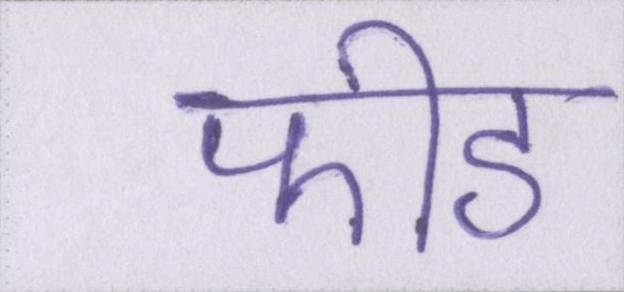 फीड